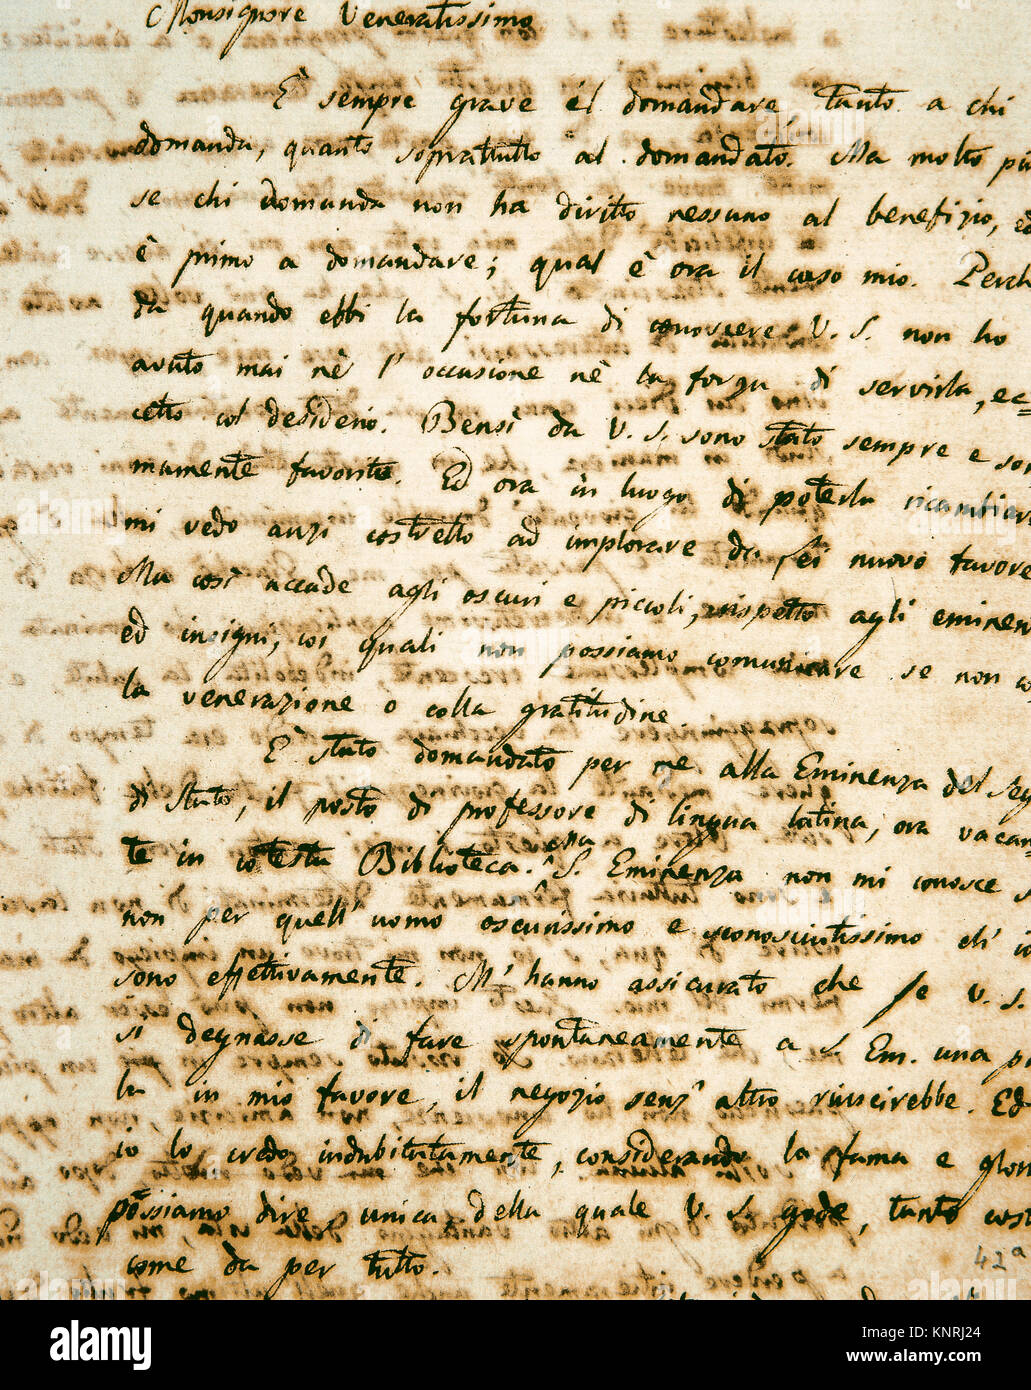 Monsignore Veneratissimo
È sempre grave il domandare, tanto a chi
domanda, quanto soprattutto al domandato. Ma molto più
se chi domanda non ha diritto nessuno al benefizio, ed
è primo a domandare; qual è ora il caso mio. Perch
da quando ebbi la fortuna di conoscere V. S. non ho
avuto mai nè l'occasione nè la forza di servirla, ec=
cetto col desiderio. Bensì da V. S. sono stato sempre e som
mamente favorito. Ed ora in luogo di poterla ricambiar
mi vedo anzi costretto ad implorare da Lei nuovo favore
Ma così accade agli oscuri e piccoli, rispetto agli eminen
ed insigni, coi quali non possiamo comunicare se non co
la venerazione o colla gratitudine.
È stato domandato per me alla Eminenza del Seg
di Stato, il posto di professore di lingua latina, ora vacan=
te in cotesta Biblioteca. S. Eminenza non mi conosce s
non per quell'uomo oscurissimo e sconosciutissimo ch' io
sono effettivamente. M' hanno assicurato che se V. S.
si degnasse di fare spontaneamente a S. Em. una pa
la in mio favore, il negozio senz' altro riuscirebbe. Ed
io lo credo indubitatamente, considerando la fama e glor
possiamo dire, unica della quale V. S. gode, tanto cost
come da per tutto.
42a
alamy
alamy stock photo
KNRJ24
www.alamy.com